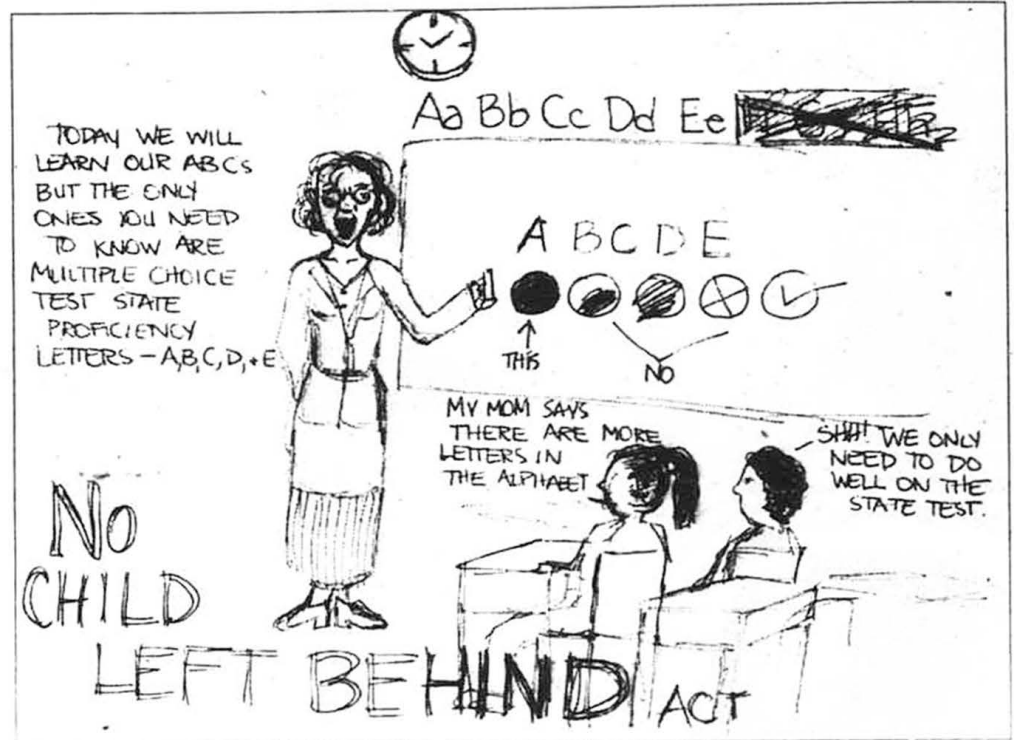 Aa Bb Cc Dd Ee
TODAY WE WILL
LEARN OUR ABCs
BUT THE ONLY
ONES YOU NEED
TO KNOW ARE
MULTIPLE CHOICE
TEST STATE
PROFICIENCY
LETTERS - A,B,C,D,+E
A B C D E
THIS
NO
MY MOM SAYS
THERE ARE MORE
LETTERS IN
THE ALPHABET
SHH! WE ONLY
NEED TO DO
WELL ON THE
STATE TEST.
NO
CHILD
LEFT BEHIND ACT